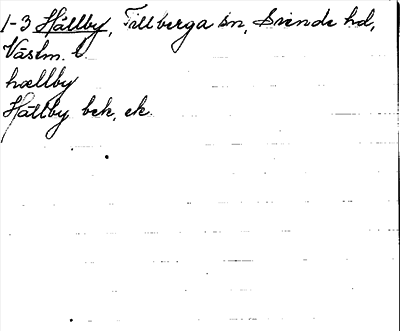 1-3 Hällby, Tillberga sn, Siende hd,
Västm. l
hællby
Hällby bek, ek.